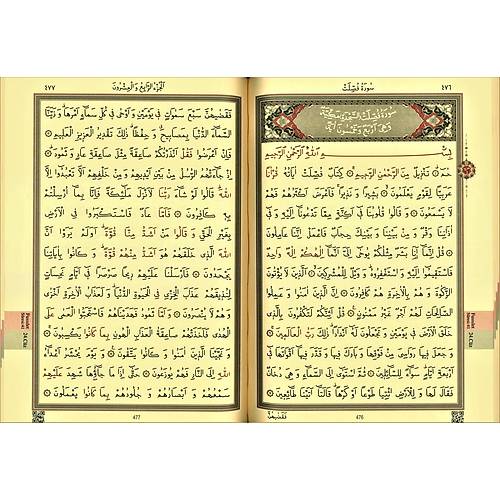 ٤٧٦
سُورَةُ فُصِّلَتْ
سُورَةُ فُصِّلَتْ السَّجْدَةِ مَكِّيَّةٌ
وَهِيَ أَرْبَعٌ وَخَمْسُونَ آيَةً
بِسْمِ اللّٰهِ الرَّحْمٰنِ الرَّحِيمِ
حٰمٓ تَنْزِيلٌ مِنَ الرَّحْمٰنِ الرَّحِيمِ كِتَابٌ فُصِّلَتْ اٰيَاتُهُ قُرْاٰنًا
عَرَبِيًّا لِقَوْمٍ يَعْلَمُونَ بَشِيرًا وَنَذِيرًا فَاَعْرَضَ اَكْثَرُهُمْ فَهُمْ
لَا يَسْمَعُونَ وَقَالُوا قُلُوبُنَا فِي اَكِنَّةٍ مِمَّا تَدْعُونَا اِلَيْهِ وَفِي
اٰذَانِنَا وَقْرٌ وَمِنْ بَيْنِنَا وَبَيْنِكَ حِجَابٌ فَاعْمَلْ اِنَّنَا عَامِلُونَ
قُلْ اِنَّمَا اَنَا بَشَرٌ مِثْلُكُمْ يُوحٰى اِلَيَّ اَنَّمَا اِلٰهُكُمْ اِلٰهٌ وَاحِدٌ
فَاسْتَقِيمُوا اِلَيْهِ وَاسْتَغْفِرُوهُ وَوَيْلٌ لِلْمُشْرِكِينَ اَلَّذِينَ لَا يُؤْتُونَ
الزَّكٰوةَ وَهُمْ بِالْاٰخِرَةِ هُمْ كَافِرُونَ اِنَّ الَّذِينَ اٰمَنُوا وَعَمِلُوا
الصَّالِحَاتِ لَهُمْ اَجْرٌ غَيْرُ مَمْنُونٍ قُلْ اَئِنَّكُمْ لَتَكْفُرُونَ بِالَّذِي
خَلَقَ الْاَرْضَ فِي يَوْمَيْنِ وَتَجْعَلُونَ لَهُ اَنْدَادًا ذٰلِكَ رَبُّ الْعَالَمِينَ
وَجَعَلَ فِيهَا رَوَاسِيَ مِنْ فَوْقِهَا وَبَارَكَ فِيهَا وَقَدَّرَ فِيهَا اَقْوَاتَهَا فِي
اَرْبَعَةِ اَيَّامٍ سَوَاءً لِلسَّائِلِينَ ثُمَّ اسْتَوٰى اِلَى السَّمَاءِ وَهِيَ دُخَانٌ
فَقَالَ لَهَا وَلِلْاَرْضِ ائْتِيَا طَوْعًا اَوْ كَرْهًا قَالَتَا اَتَيْنَا طَائِعِينَ
فَقَضٰيهُنَّ
476
Fussilet Suresi
24.Cüz
اَلْجُزْءُ الرَّابِعُ وَالْعِشْرُونَ
٤٧٧
فَقَضٰيهُنَّ سَبْعَ سَمٰوَاتٍ فِي يَوْمَيْنِ وَاَوْحٰى فِي كُلِّ سَمَاءٍ اَمْرَهَا وَزَيَّنَّا
السَّمَاءَ الدُّنْيَا بِمَصَابِيحَ وَحِفْظًا ذٰلِكَ تَقْدِيرُ الْعَزِيزِ الْعَلِيمِ
فَاِنْ اَعْرَضُوا فَقُلْ اَنْذَرْتُكُمْ صَاعِقَةً مِثْلَ صَاعِقَةِ عَادٍ وَثَمُودَ
اِذْ جَاءَتْهُمُ الرُّسُلُ مِنْ بَيْنِ اَيْدِيهِمْ وَمِنْ خَلْفِهِمْ اَلَّا تَعْبُدُوا اِلَّا
اللّٰهَ قَالُوا لَوْ شَاءَ رَبُّنَا لَاَنْزَلَ مَلٰئِكَةً فَاِنَّا بِمَا اُرْسِلْتُمْ
بِهِ كَافِرُونَ فَاَمَّا عَادٌ فَاسْتَكْبَرُوا فِي الْاَرْضِ
بِغَيْرِ الْحَقِّ وَقَالُوا مَنْ اَشَدُّ مِنَّا قُوَّةً اَوَلَمْ يَرَوْا اَنَّ
اللّٰهَ الَّذِي خَلَقَهُمْ هُوَ اَشَدُّ مِنْهُمْ قُوَّةً وَكَانُوا بِاٰيَاتِنَا
يَجْحَدُونَ فَاَرْسَلْنَا عَلَيْهِمْ رِيحًا صَرْصَرًا فِي اَيَّامٍ نَحِسَاتٍ
لِنُذِيقَهُمْ عَذَابَ الْخِزْيِ فِي الْحَيٰوةِ الدُّنْيَا وَلَعَذَابُ الْاٰخِرَةِ اَخْزٰى
وَهُمْ لَا يُنْصَرُونَ وَاَمَّا ثَمُودُ فَهَدَيْنَاهُمْ فَاسْتَحَبُّوا الْعَمٰى عَلَى
الْهُدٰى فَاَخَذَتْهُمْ صَاعِقَةُ الْعَذَابِ الْهُونِ بِمَا كَانُوا يَكْسِبُونَ
وَنَجَّيْنَا الَّذِينَ اٰمَنُوا وَكَانُوا يَتَّقُونَ وَيَوْمَ يُحْشَرُ اَعْدَاءُ
اللّٰهِ اِلَى النَّارِ فَهُمْ يُوزَعُونَ حَتّٰى اِذَا مَا جَاؤُهَا شَهِدَ عَلَيْهِمْ
سَمْعُهُمْ وَاَبْصَارُهُمْ وَجُلُودُهُمْ بِمَا كَانُوا يَعْمَلُونَ
477
Fussilet Suresi
24.Cüz